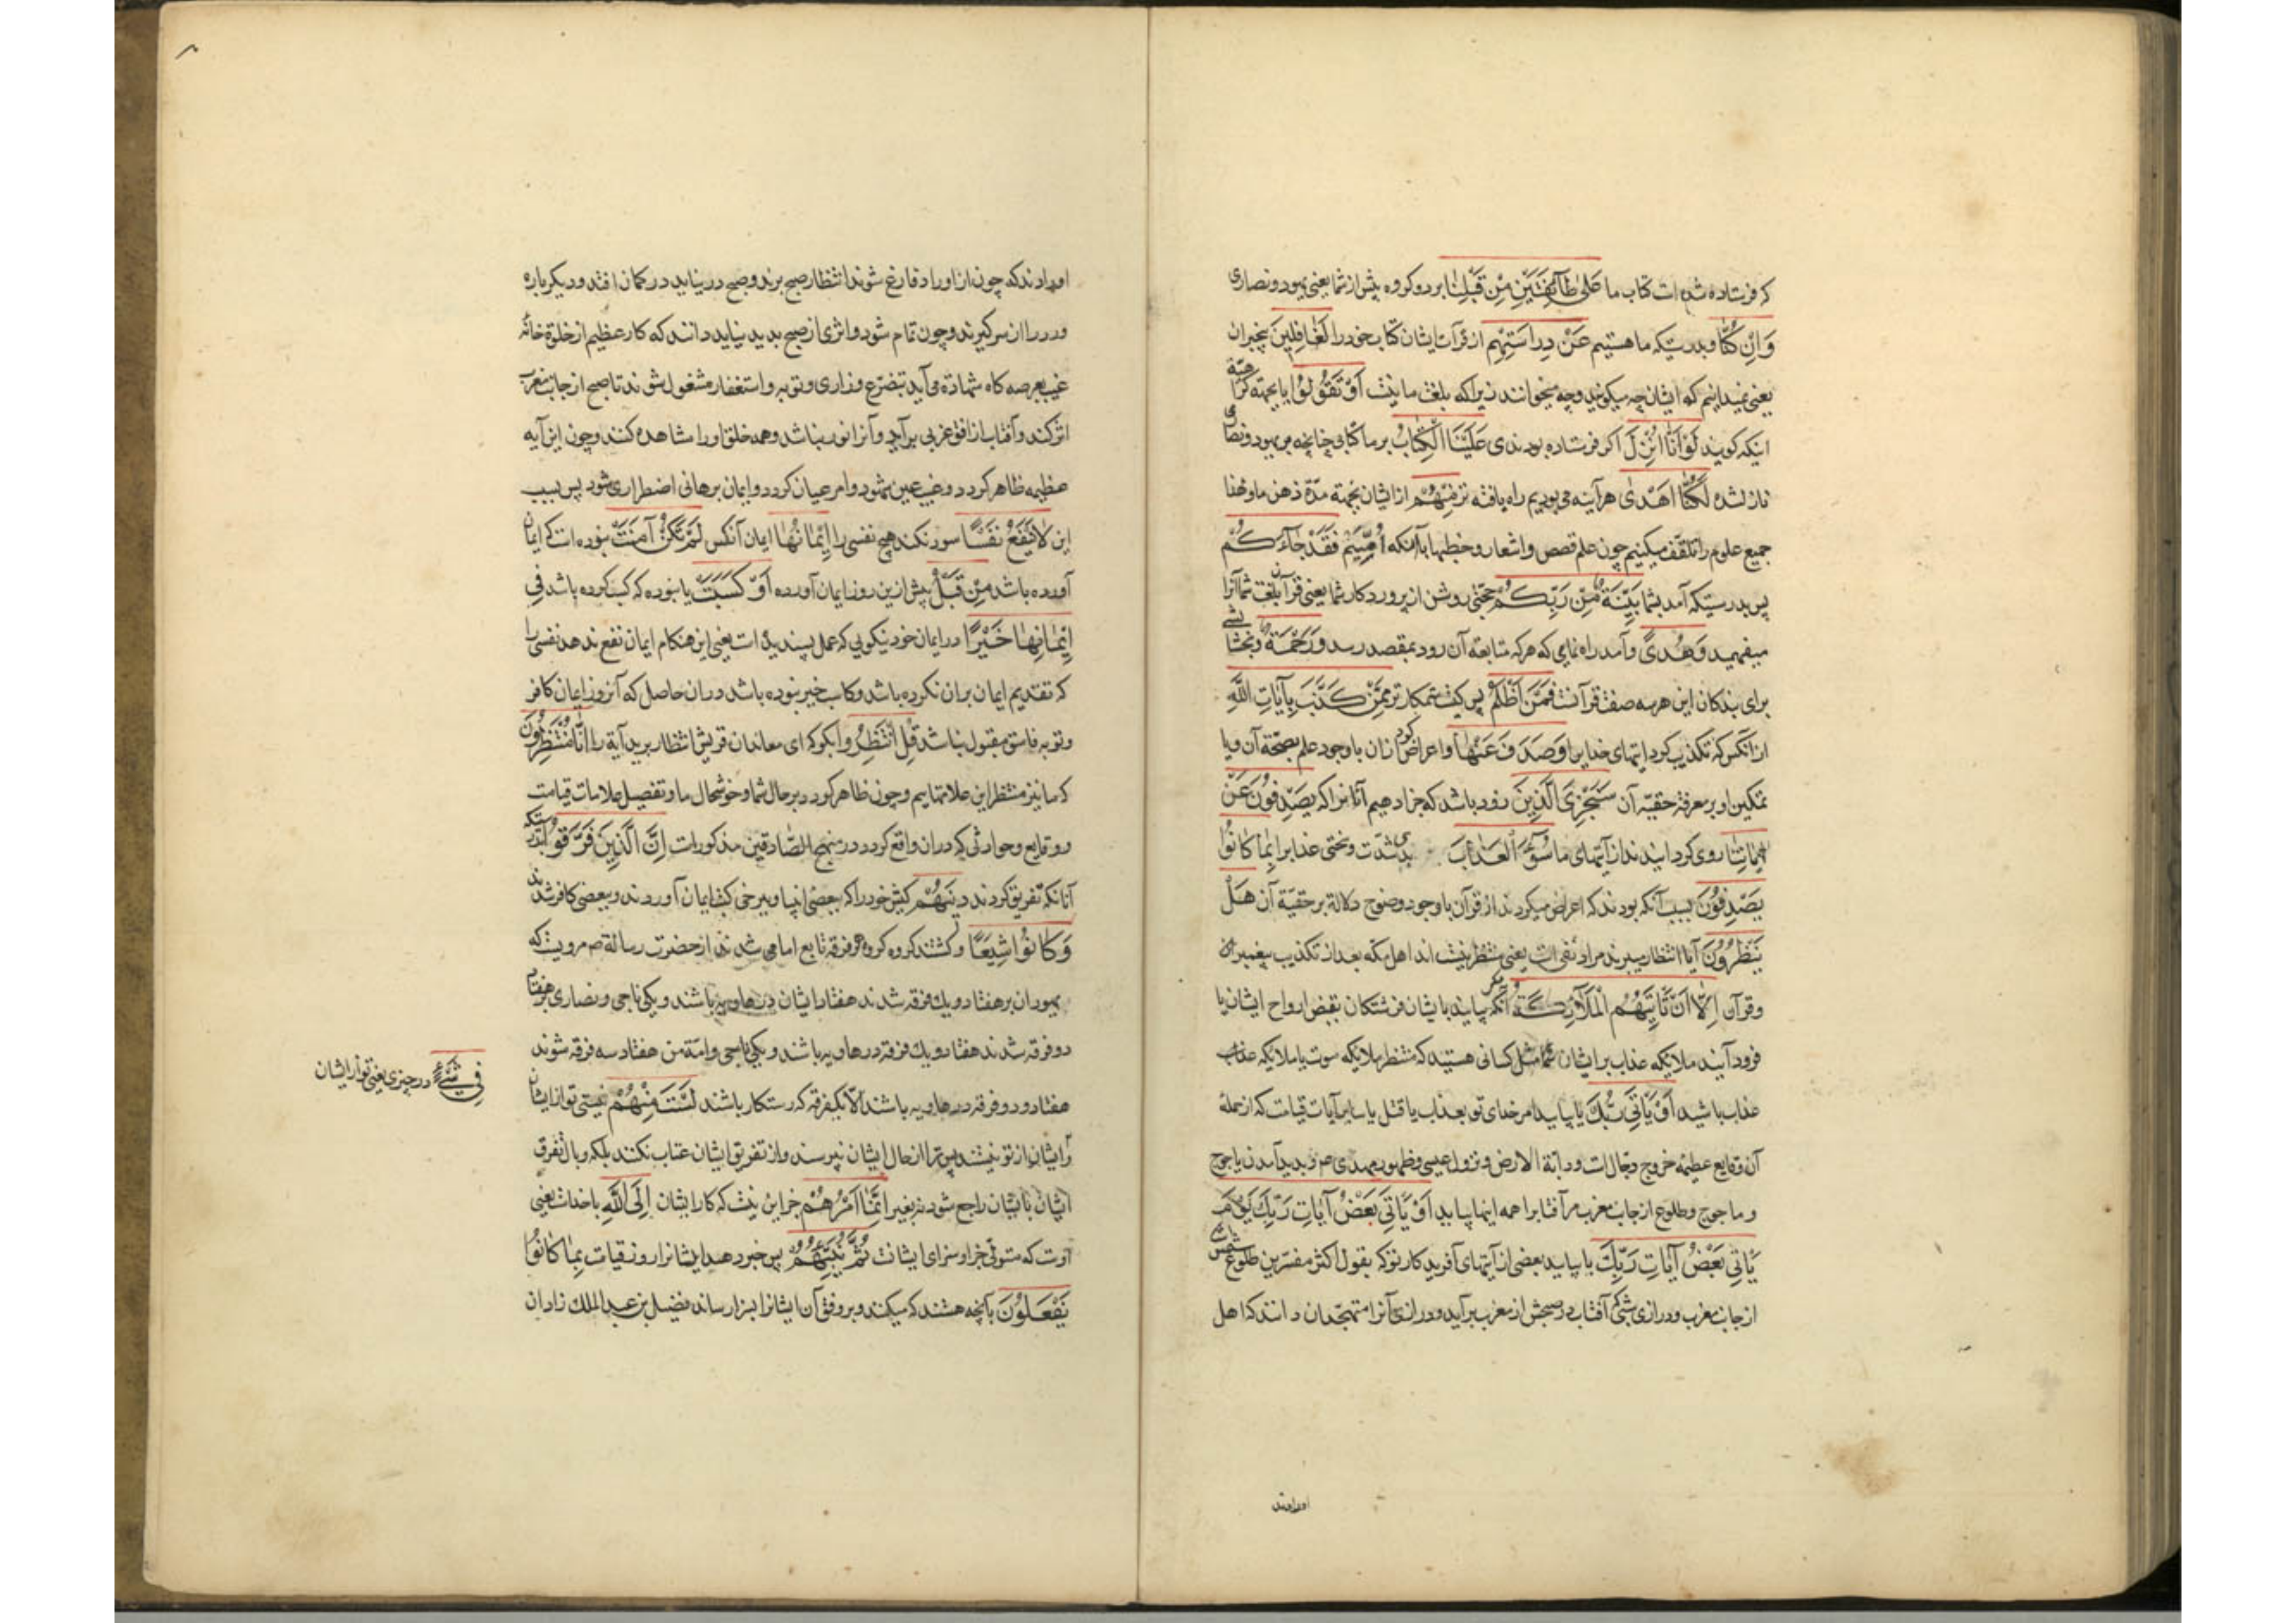 که فرستاده شده است کتاب ما عَلیٰ طَآئِفَتَیْنِ مِنْ قَبْلِنٰا بر دو کروه پیش از شما یعنی یهود و نصاری
وَاِنْ کُنّٰا و بدرستیکه ما هستیم عَنْ دِراسَتِهِم از قرآت ایشان کتاب خود را لَغٰافِلِینَ بیخبران
یعنی نمیدانیم که ایشان چه میکویند و چه میخوانند زیرا که بلغت ما نیست اَوْ تَقُولُوْا یا بجهة کراهة
اینکه کویند لَوْ اَنّٰا اُنْزِلَ اکر فرستاده بودندی عَلَیْنَا الْکِتٰابُ بر ما کتابی چنانچه بر یهود و نصاری
نازلشده لَکُنّٰا اَهْدیٰ هرآینه می بودیم راه یافته تر مِنْهُمْ از ایشان بجهة حدّة ذهن ما و لهذا
جمیع علوم را تلقف میکنیم چون علم قصص و اشعار و خطبها با آنکه اُمِّیّیم فَقَدْ جٰآءَکُمْ
پس بدرستیکه آمد بشما بَیِّنَةٌ مِنْ رَبِّکُمْ حجتی روشن از پروردکار شما یعنی قرآن بلغت شما آنرا
میفهمید وَهُدیً و آمد راه نمایی که هر که متابعة آن رود بمقصد رسد وَرَحْمَةٌ و بخشایشی
برای بندکان این هر سه صفت قرآنست فَمَنْ اَظْلَمُ پس کیست ستمکارتر مِمَّنْ کَذَّبَ بِآیٰاتِ اللّٰهِ
از آنکس که تکذیب کرد ایتهای خدایرا وَصَدَفَ عَنْهٰا و اعراض کرد از ان با وجود علم بصحّة آن و یا
تمکین او بر معرفة حقیّه آن سَنَجْزِی الَّذِینَ زود باشد که جزا دهیم آنانرا که یَصْدِفُونَ عَنْ
اٰیٰاتِنٰا روی کردانیدند از آیتهای ما سُوٓءَ الْعَذٰابِ بدی شدّت و سختی عذاب را بِمٰا کٰانُوْا
یَصْدِفُونَ بسبب آنکه بودند که اعراض میکردند از قرآن با وجود وضوح دلالة بر حقیّة آن هَلْ
یَنْظُرُونَ آیا انتظار میبرند مراد نفی است یعنی منتظر نیستند اهل مکّه بعد از تکذیب پیغمبران
و قرآن اِلّٰا اَنْ تَاتِیَهُمُ الْمَلٰآئِکَةُ مکر آنکه بیایند بایشان فرشتکان بقبض ارواح ایشان یا
فرود آیند ملایکه عذاب بر ایشان مثل کسانی هستید که منتظر ملایکه موت یا ملایکه عذاب
عذاب باشید اَوْ یَاْتِیَ رَبُّکَ یا بیاید امر خدای تو بعذاب یا قتل یا سایر آیات قیامت که از جملهٔ
آن وقایع عظیمه خروج دجّال است و دابّة الارض و نزول عیسی و ظهور مهدی عم و پدید آمدن یاجوج
و ماجوج و طلوع از جانب مغرب مر آفتابرا همه اینها بیاید اَوْ یَاْتِیَ بَعْضُ آیٰاتِ رَبِّکَ یَوْمَ
یَاْتِی بَعْضُ آیٰاتِ رَبِّکَ یا بیاید بعضی از آیتهای آفریدکار تو که بقول اکثر مفسّرین طلوع شمس
از جانب مغرب و درازی شبی که آفتاب در صبحش از مغرب برآید و درازی آنرا متهجّدان دانند که اهل
اورادند
اورادند که چون از اوراد فارغ شوند انتظار صبح برند و صبح در نیاید در کمان افتند و دیکر باره
ورد را از سر کیرند و چون تمام شود و اثری از صبح پدید نیاید دانند که کار عظیم از خلوة خانهٔ
غیب بعرصه کاه شهادة می آید بتضرّع و زاری و توبه و استغفار مشغول شوند تا صبح از جانب مغرب
اثر کند و آفتاب از افق غربی برآید و آنرا نور نباشد و همه خلق او را مشاهده کنند و چون این آیه
عظیمه ظاهر کردد و غیب عین شود و امر عیان کردد و ایمان برهانی اضطراری شود پس بسبب
این لٰا یَنْفَعُ نَفْسًا سود نکند هیچ نفسی را اِیْمٰانُهٰا ایمان آنکس لَمْ تَکُنْ آمَنَتْ نبوده است که ایمان
آورده باشد مِنْ قَبْلُ پیش ازین روز ایمان آورده اَوْ کَسَبَتْ یا نبوده که کسب کرده باشد فِی
اِیْمٰانِهٰا خَیْرًا در ایمان خود نیکویی که عمل پسندیده است یعنی این هنکام ایمان نفع ندهد نفسی را
که تقدیم ایمان بران نکرده باشد و کاسب خیر نبوده باشد در ان حاصل که آنروز ایمان کافر
و توبه فاسق مقبول نباشد قُلِ انْتَظِرُوا بکو که ای معاندان قریش انتظار برید آیة را اِنّٰا مُنْتَظِرُونَ
که ما نیز منتظر این علامتهاییم و چون ظاهر کردد بر حال شما و خوشحال ما و تفصیل علامات قیامت
و وقایع و حوادثی که در ان واقع کردد در منهج الصّادقین مذکور است اِنَّ الَّذِینَ فَرَّقُوا بدرستیکه
آنانکه تفریق کردند دِینَهُمْ کیش خود را که ببعضی انبیا و برخی کتب ایمان آوردند و ببعضی کافر شدند
وَکٰانُوا شِیَعًا و کشتند کروه کروه هر فرقه تابع امامی شدند از حضرت رسالة ص مرویست که
یهودان بر هفتاد و یک فرقه شدند هفتاد ایشان در هاویه باشند و یکی ناجی و نصاری بر هفتاد
دو فرقه شدند هفتاد و یک فرقه در هاویه باشند و یکی ناجی و امّة من هفتاد سه فرقه شوند
هفتاد و دو فرقه در هاویه باشند الّا یکفرقه که رستکار باشند لَسْتَ مِنْهُمْ نیستی تو از ایشان
فِی شَیْءٍ در چیزی یعنی تو از ایشان
و ایشان از تو نیستند پس ترا از حال ایشان نپرسند و از تفریق ایشان عتاب نکنند بلکه وبال تفرق
ایشان بایشان راجع شود نه بغیر اِنَّمٰا اَمْرُهُمْ جز این نیست که کار ایشان اِلَی اللّٰهِ با خداست یعنی
اوست که متولّی جزا و سزای ایشانست ثُمَّ یُنَبِّئُهُمْ پس خبر دهد ایشانرا روز قیامت بِمٰا کٰانُوا
یَفْعَلُوْنَ بآنچه هستند که میکنند و بر وفق آن ایشانرا بسزا رساند فضیل بن عبدالملک زادان